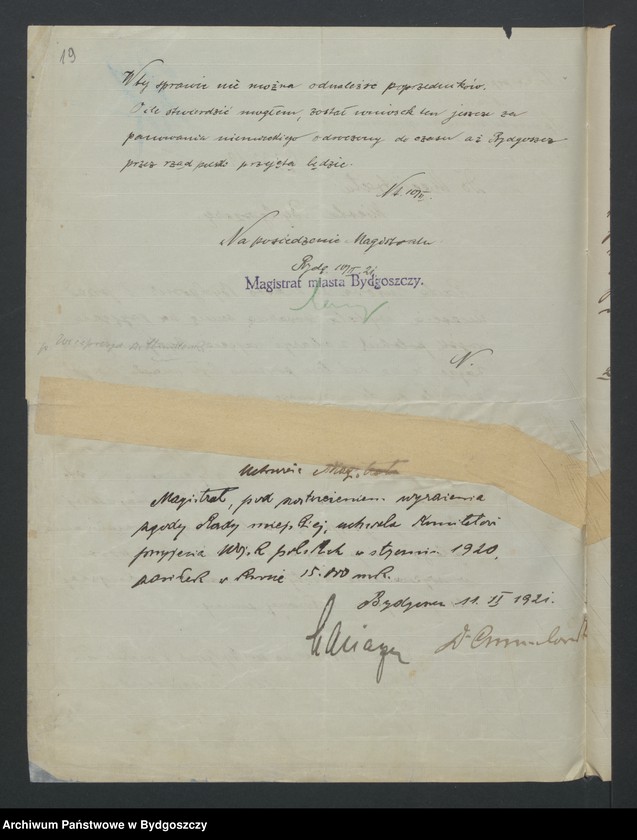 19
W tej sprawie nie można odnaleźć poprzedników.
O ile stwierdzić mogłem, został wniosek ten jeszcze za
panowania niemieckiego odroczony do czasu aż Bydgoszcz
przez rząd polski przyjętą będzie.
Na posiedzenie Magistratu
Bydg. 21
Magistrat miasta Bydgoszczy.
N.
Uchwała
Magistrat, pod zastrzeżeniem wyrażenia
zgody Rady miejskiej, uchwala Komitetowi
przyjęcia Wojsk polskich w styczniu 1920,
zasiłek w kwocie 15.000 mk.
Bydgoszcz 11. II 1921.
Archiwum Państwowe w Bydgoszczy